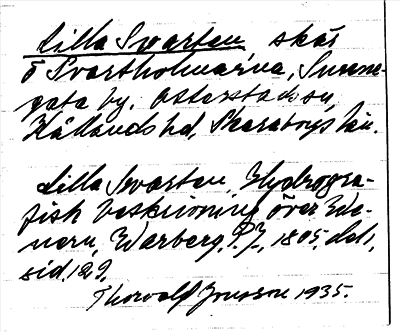 Lilla Svarten, skär
ö Svartholmarna, Sunne-
gata by. Otterstads sn,
Kållands hd, Skaraborgs län.
Lilla Svarten, Hydrogra-
fisk beskrivning över We-
nern, Warberg, P. J., 1805, del 1,
sid. 129.
Thorvolf Jonsson 1935.